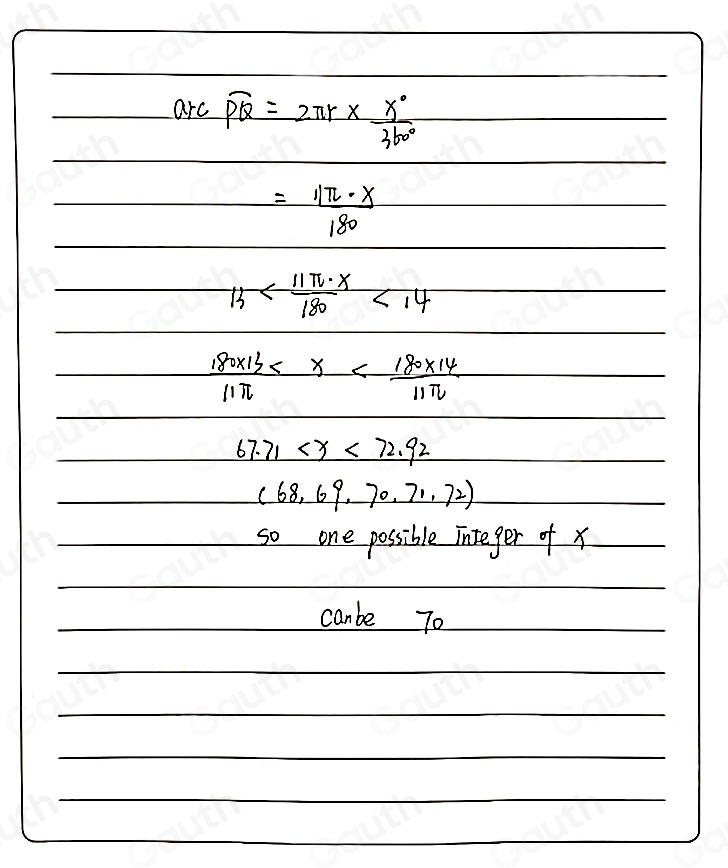 arc PQ = 2πr × x°/360°
= 11π · x/180
13 < 11π · x/180 < 14
180×13/11π < x < 180×14/11π
67.71 < x < 72.92
(68, 69, 70, 71, 72)
so one possible integer of x
can be 70